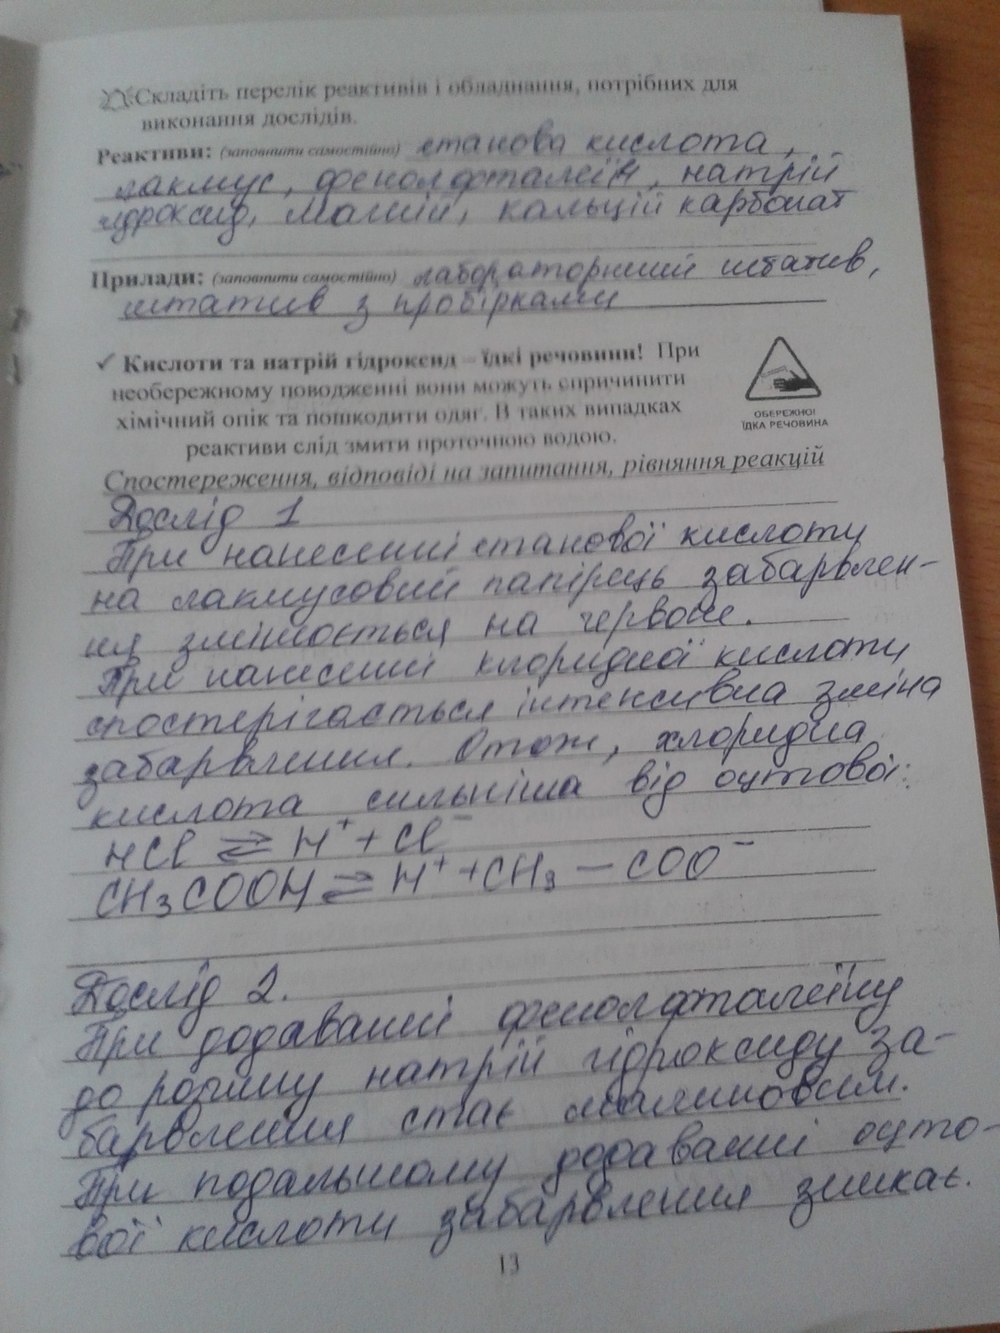 Складіть перелік реактивів і обладнання, потрібних для
виконання дослідів.
Реактиви: (заповнити самостійно) етанова кислота,
лакмус, фенолфталеїн, натрій
гідроксид, магній, кальцій карбонат
Прилади: (заповнити самостійно) лабораторний штатив,
штатив з пробірками
✓ Кислоти та натрій гідроксид – їдкі речовини! При
необережному поводженні вони можуть спричинити
хімічний опік та пошкодити одяг. В таких випадках
реактиви слід змити проточною водою.
ОБЕРЕЖНО!
ЇДКА РЕЧОВИНА
Спостереження, відповіді на запитання, рівняння реакцій
Дослід 1
При нанесенні етанової кислоти
на лакмусовий папірець забарвлен-
ня змінюється на червоне.
При нанесенні хлоридної кислоти
спостерігається інтенсивна зміна
забарвлення. Отож, хлоридна
кислота сильніша від оцтової:
HCl ⇄ H⁺ + Cl⁻
CH₃COOH ⇄ H⁺ + CH₃ — COO⁻
Дослід 2.
При додаванні фенолфталеїну
до розчину натрій гідроксиду за-
барвлення стає малиновим.
При подальшому додаванні оцто-
вої кислоти забарвлення зникає.
13